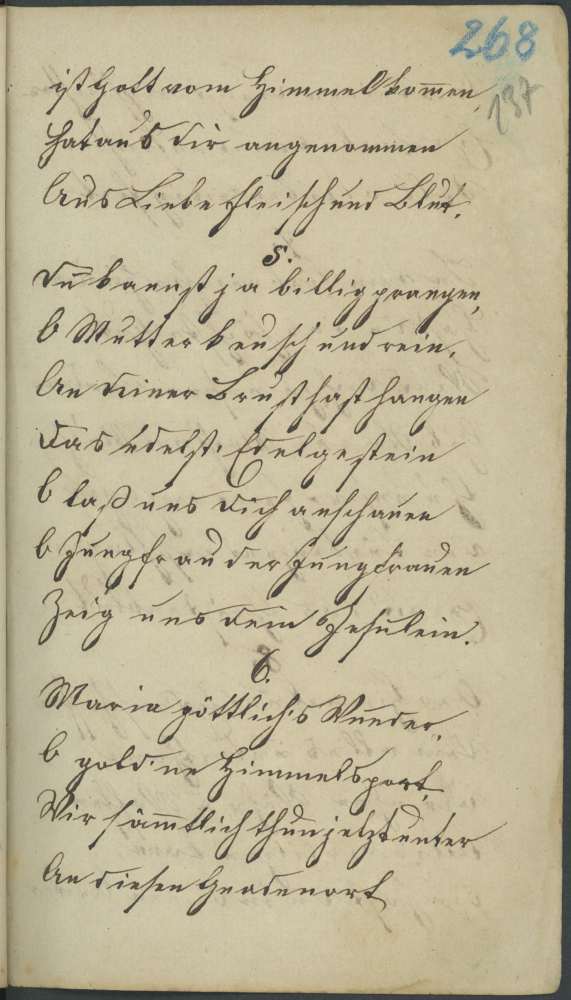 268
137
ist Gott vom Himmel kom̄en,
hat aus dir angenommen
Aus Liebe Fleisch und Blut.
5.
Du kannst ja billig prangen,
O Mutter keusch und rein,
An deiner Brust hast hangen
Das edelst. Edelgestein
O laß uns dich anschauen
O Jungfrau der Jungfrauen
Zeig uns dein Jesulein.
6.
Maria göttlich's Wunder,
O gold'ne Himmelsport,
Wir sämmtlich thun jetzt unter
An diesen Gnadenort